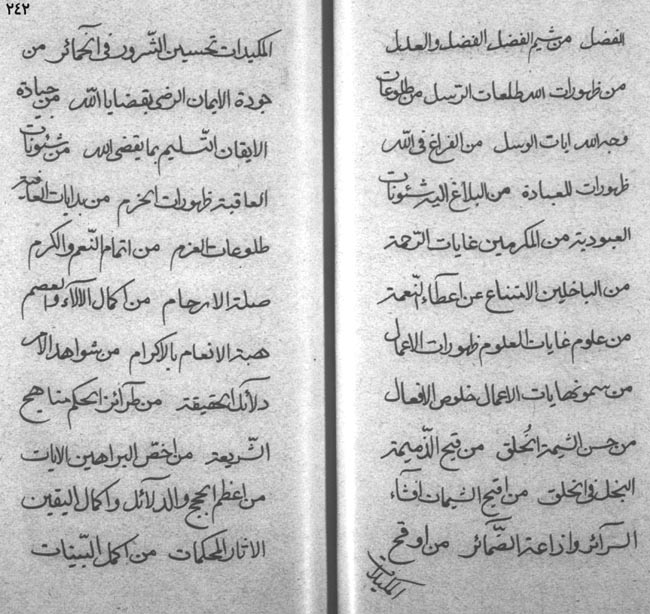 ٢٤٢
الفضل من شيم الفضل الفضل والعدل
من ظهورات الله طلعات الرسل من طلوعات
وجه الله ايات الوسل من الفراغ في الله
ظهورات للعبادة من البلاغ اليه شئونات
العبودية من المكرمين غايات الرّحمة
من الباخلين الامتناع عن اعطاء النّعمة
من علوم غايات العلوم ظهورات الاعمال
من سمو نهايات الاعمال خلوص الافعال
من حسن الشيمة الخلق من قبح الذّميمة
البخل في الخلق من اقبح الشيمات افشاء
السرآئر واذاعة الضّمآئر من اوقح
المكيدات
المكيدات تحسين الشّرور في الخمائر من
جودة الايمان الرضى بقضايا الله من جيادة
الايقان التّسليم بما يقضى الله من شئونات
العاقبة ظهورات الحزم من بدايات العاقبة
طلوعات العزم من اتمام النّعم والكرم
صلة الارحام من اكمال الالآء والعصم
هبة الانعام بالاكرام من شواهد الامر
دلآئل الحقيقة من طرآئز الحكم مناهج
الشّريعة من اخصّ البراهين الايات
من اعظم الحجج والدلآئل واكمال اليقين
الاثار المحكمات من اكمل البيّنات